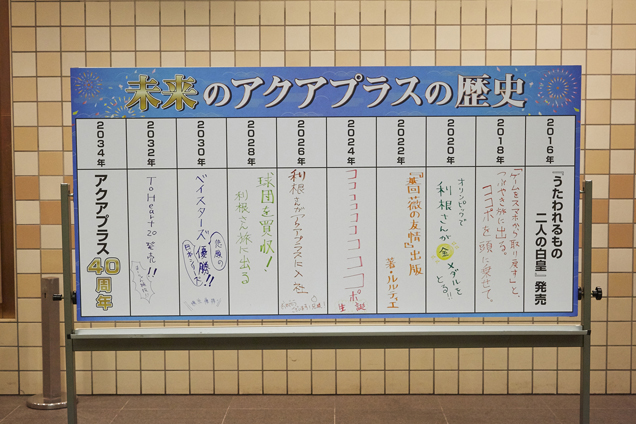 未来のアクアプラスの歴史
2016年
『うたわれるもの
二人の白皇』発売
2018年
「ゲームをスマホから取り戻す」と、
つぶやき旅に出る。
ココポを頭に乗せて。
2020年
オリンピックで
利根さんが
金メダルを
とる!!
2022年
『薔薇の友情』出版
著・ルルティエ
2024年
ココココココココココポ
生誕
2026年
利根さんがアクアプラスに入社
2028年
球団を買収!
利根さん旅に出る
2030年
ベイスターズ優勝!!
悲願の
日本シリーズ
2032年
ToHeart20発売!!
2034年
アクアプラス40周年